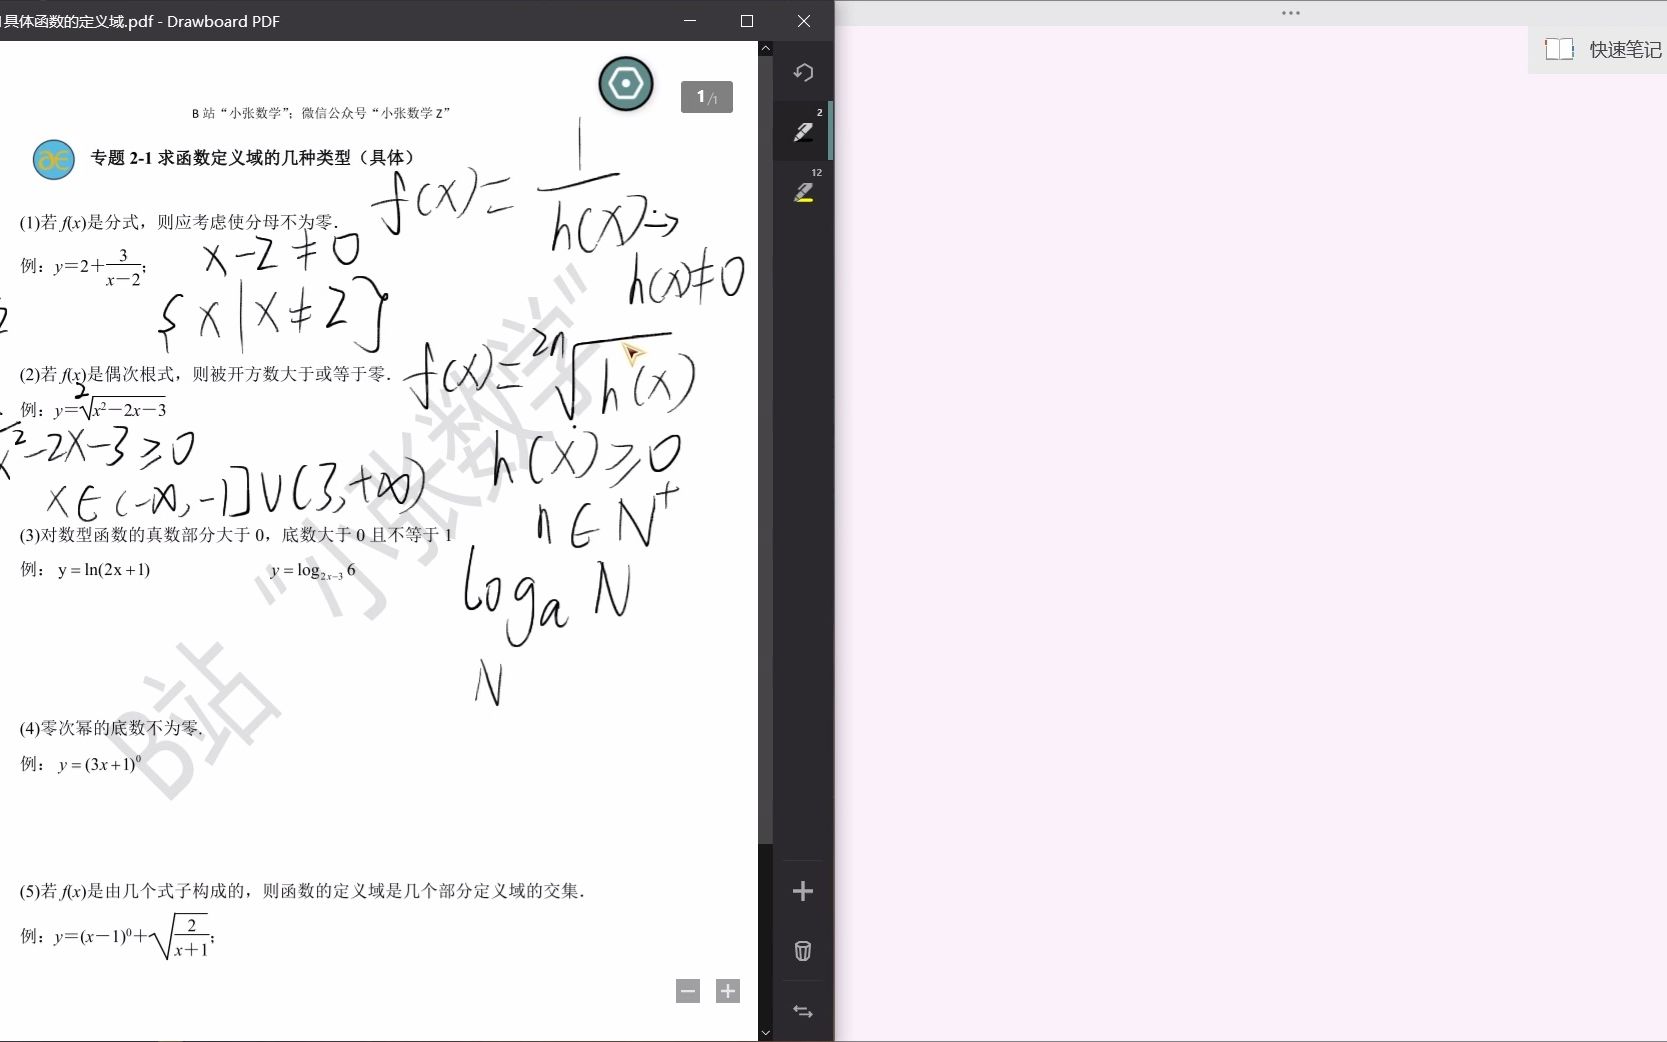 具体函数的定义域.pdf - Drawboard PDF
快速笔记
1/1
2
12
B 站 “小张数学”；微信公众号 “小张数学 Z”
专题 2-1 求函数定义域的几种类型（具体）
f(x) = 1/h(x) →
(1)若 f(x)是分式，则应考虑使分母不为零.
x-2≠0
h(x)≠0
例：y＝2＋3/(x－2)；
{x|x≠2}
(2)若 f(x)是偶次根式，则被开方数大于或等于零.
f(x)= 2n√h(x)
例：y＝2√x²－2x－3
x²-2x-3≥0
h(x)≥0
x∈(-∞,-1]∪(3,+∞)
n∈N⁺
(3)对数型函数的真数部分大于 0，底数大于 0 且不等于 1
例： y = ln(2x+1) y = log₂ₓ₋₃ 6
logₐ N
N
(4)零次幂的底数不为零.
例： y = (3x+1)⁰
(5)若 f(x)是由几个式子构成的，则函数的定义域是几个部分定义域的交集.
例：y＝(x－1)⁰＋√(2/(x＋1))；
B站 “小张数学”